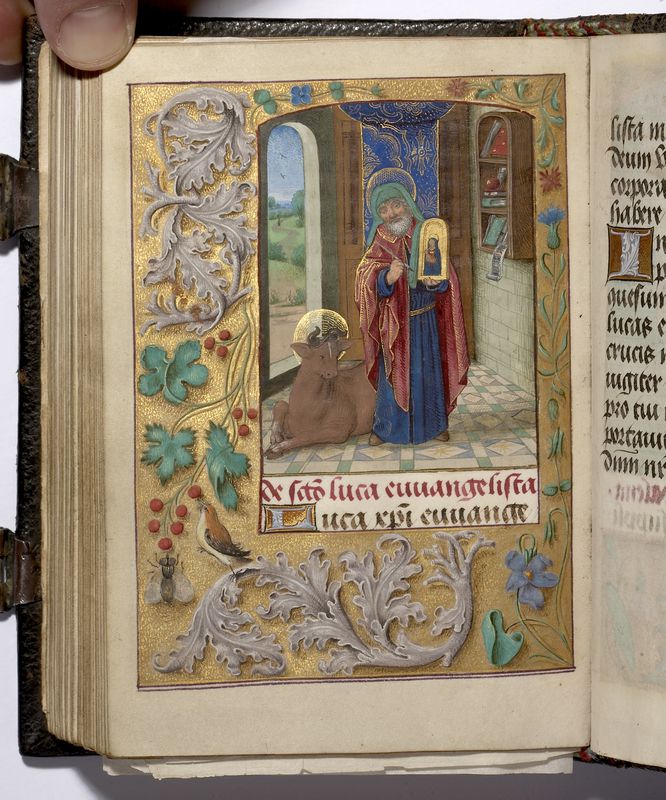 de scto luca euuangelista
Luca xpi euuange
lista
deum
corporis
habere
quesum
lucas e
crucis
iugiter
pro tui
portauit